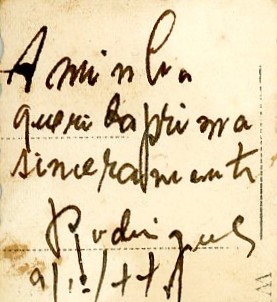 A minha
querida prima
sinceramente
Rodrigues